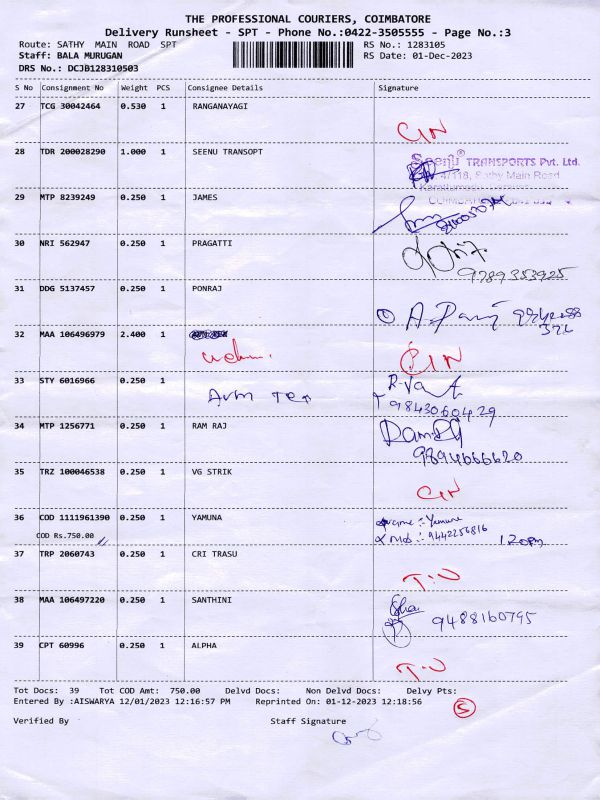 THE PROFESSIONAL COURIERS, COIMBATORE
Delivery Runsheet - SPT - Phone No.:0422-3505555 - Page No.:3
Route: SATHY MAIN ROAD SPT RS No.: 1283105
Staff: BALA MURUGAN RS Date: 01-Dec-2023
DRS No.: DCJB128310503
S No Consignment No Weight PCS Consignee Details Signature
27 TCG 30042464 0.530 1 RANGANAYAGI
CIN
28 TDR 200028290 1.000 1 SEENU TRANSOPT
Seenu TRANSPORTS Pvt. Ltd.
4/118, Sathy Main Road
29 MTP 8239249 0.250 1 JAMES
30 NRI 562947 0.250 1 PRAGATTI
9789353925
31 DDG 5137457 0.250 1 PONRAJ
32 MAA 106496979 2.400 1
CIN
33 STY 6016966 0.250 1
Avm Tex
9843060429
34 MTP 1256771 0.250 1 RAM RAJ
9894666620
35 TRZ 100046538 0.250 1 VG STRIK
CIN
36 COD 1111961390 0.250 1 YAMUNA
Name :- Yamuna
COD Rs.750.00
Mob :- 9442256816
1 20pm
37 TRP 2060743 0.250 1 CRI TRASU
38 MAA 106497220 0.250 1 SANTHINI
9488160795
39 CPT 60996 0.250 1 ALPHA
Tot Docs: 39 Tot COD Amt: 750.00 Delvd Docs: Non Delvd Docs: Delvy Pts:
Entered By :AISWARYA 12/01/2023 12:16:57 PM Reprinted On: 01-12-2023 12:18:56
5
Verified By Staff Signature